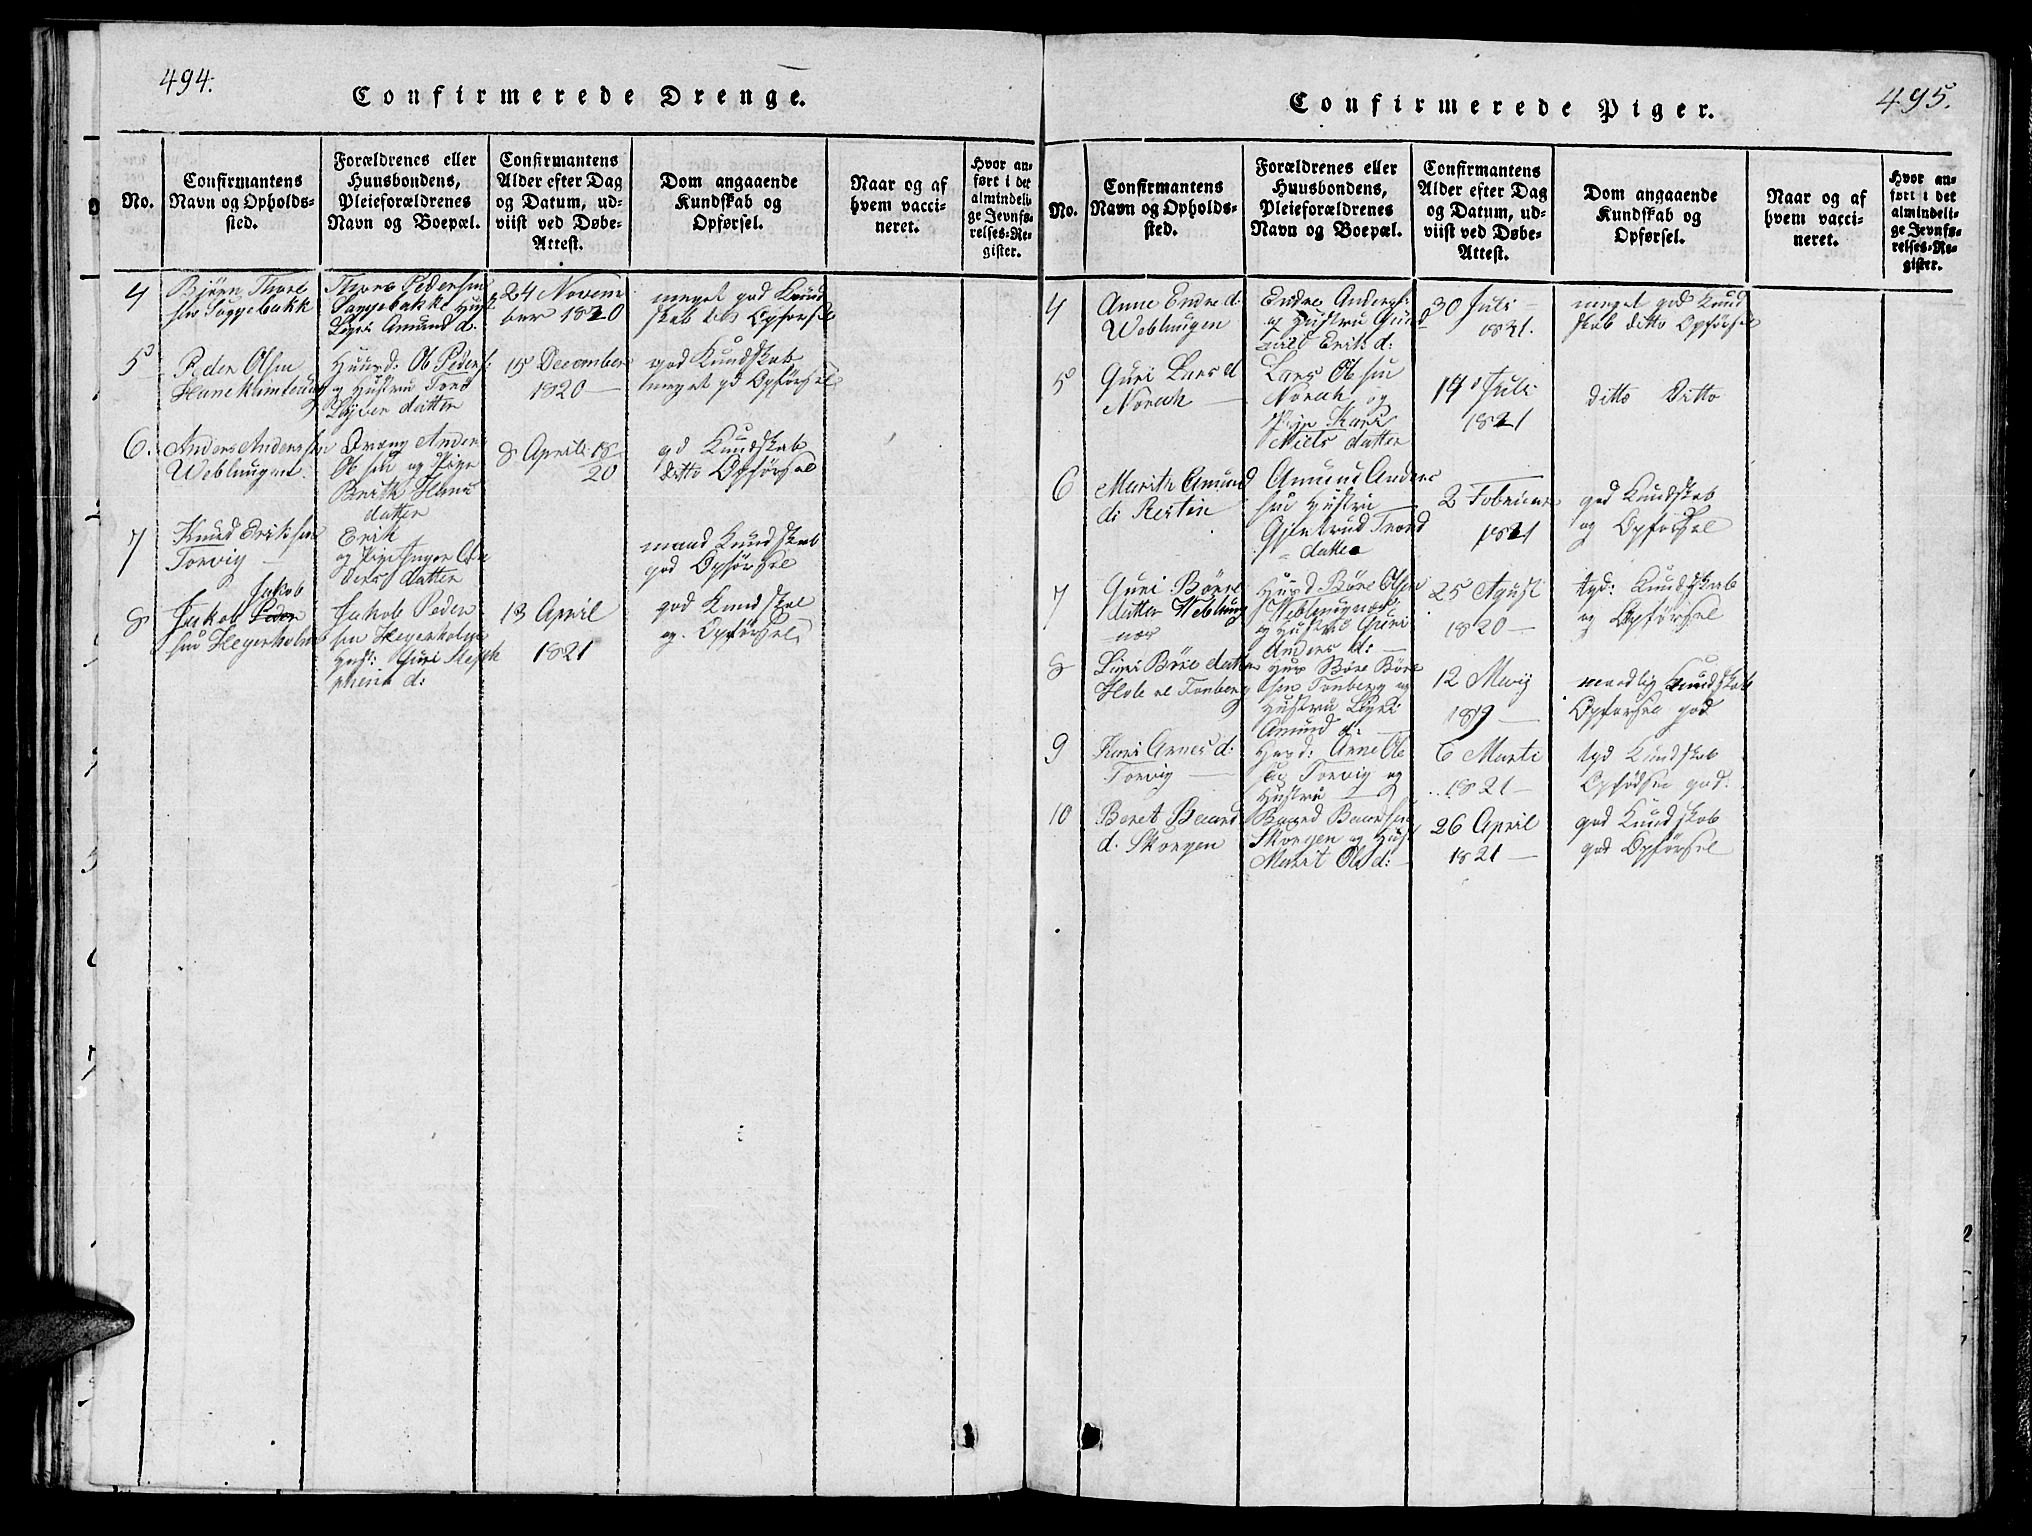 494.
Confirmerede Drenge.
No.
Confirmantens
Navn og Opholds-
sted.
Forældrenes eller
Huusbondens,
Pleieforældrenes
Navn og Boepæl.
Confirmantens
Alder efter Dag
og Datum, ud-
viist ved Døbe-
Attest.
Dom angaaende
Kundskab og
Opførsel.
Naar og af
hvem vacci-
neret.
Hvor an-
ført i det
almindeli-
ge Jevnfø-
relses-Re-
gister.
4
Bjørn Thore
sen Soggebakk
Thore Pedersen
Soggebakk Hust
Sigri Amund d.
24 Novem
ber 1820
meget god Kund
skab dito Opførsel
5
Peder Olsen
Huusd: Ole Peders:
og Hustru
datter
15 December
1820 —
god Kundskab
meget gd Opførsel
6.
Anders Andersen
Weblungen.
Dræng Anders
Olsen og Pige
Berith Hans
datter
8 Aprili 18
20
gd Kundskab
ditto Opførsel
7
Knud Eriksen
Torvig —
Erik
og Pige Inger
ders datter
maad Kundskab
god Opførsel
8
Jakob
Jakob Peder
sen Hegerholm
Jakob Peder
sen Hegerholm
Hust: Guri Steph
phens d:
13 April
1821
god Kundskab
og Opførsel
495.
Confirmerede Piger.
No.
Confirmantens
Navn og Opholds-
sted.
Forældrenes eller
Huusbondens,
Pleieforældrenes
Navn og Boepæl.
Confirmantens
Alder efter Dag
og Datum, ud-
viist ved Døbe-
Attest.
Dom angaaende
Kundskab og
Opførsel.
Naar og af
hvem vacci-
neret.
Hvor an-
ført i det
almindeli-
ge Jevnfø-
relses-Re-
gister.
4
Anne Endre d.
Weblungen
Endre Anders:
og Hustru Gund
hild Erik: d:
30 Juli —
1821.
meget god Kund
skab ditto Opførsel
5
Guri Lars d
Norah —
Lars Olsen
Norah og
Pige Kari
Niels datter
14 Juli
1821
ditto ditto
6
Marith Amund
d: Resten
Amund Anders
sen Hustru
Gjertrud Trond
datter
2 Februar
1821
god Kundskab
og Opførsel
7
Guri Børre
datter Weblung
nær
Husd Børe Olsen
Weblungnæs
og Hustru Guri
Anders d: —
25 Agust
1820 —
tyd: Kundskab
og Opførsel
8
Sigri Børe datter
Tonberg
Hus Børe Børe
sen Tonberg og
Hustru Sigri
Amund d:
12 Maij
1819 —
maadlig Kundskab
Opførsel god
9
Kari Arnes d:
Torvig —
Husd: Arne Ole
Torvig og
Hustru —
6 Marti
1821 —
tyd Kundskab
Opførsel god.
10
Beret Baard
d. Skorgen
Baard Baardsen
Skorgen og Hust
Marit Ols d: —
26 April
1821 —
god Kundskab
god Opførsel